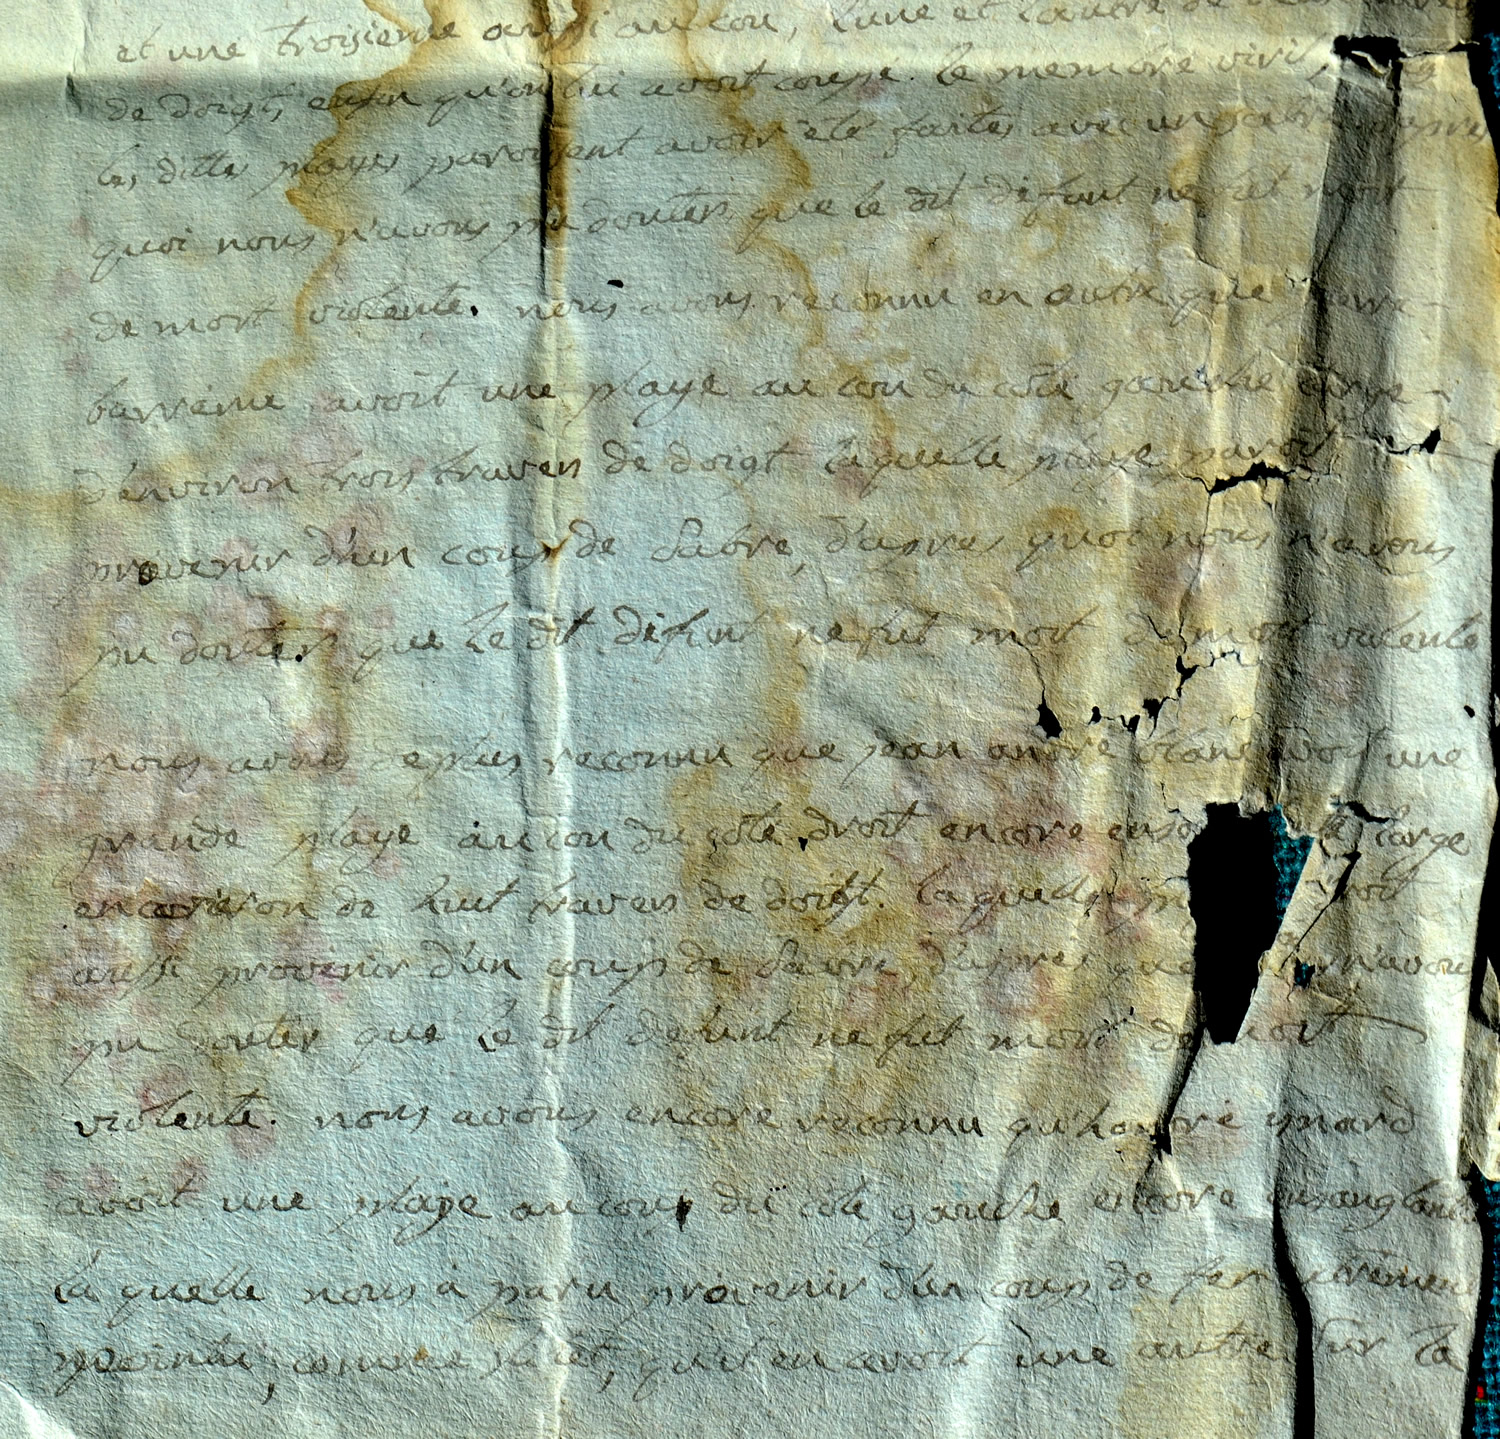 et une troisieme aussi au cou, l'une et l'autre de
de doigt, enfin qu'on lui avoit coupé le membre viril,
les dittes playes paroissent avoir été faites avec un sabre d'apres
quoi nous n'avons pu douter que le dit défunt ne fut mort
de mort violente. nous avons reconnu en outre que pierre
barreme avoit une playe au cou du côté gauche large
d'environ trois travers de doigt laquelle playe paroit
provenir d'un coup de sabre, d'apres quoi nous n'avons
pu douter que le dit défunt ne fut mort de mort violente
nous avons de plus reconnu que jean andré blanc avoit une
grande playe au cou du côté droit encore large
environ de huit travers de doigt. la quelle
aussi provenir d'un coup de sabre, d'aprés n'avons
pu douter que le dit defunt ne fut mort de mort
violente. nous avons encore reconnu qu'honoré ynard
avoit une playe au cou du côté gauche encore ensanglantée
la quelle nous à paru provenir d'un coup de fer
comme qu'il en avoit une autre sur la